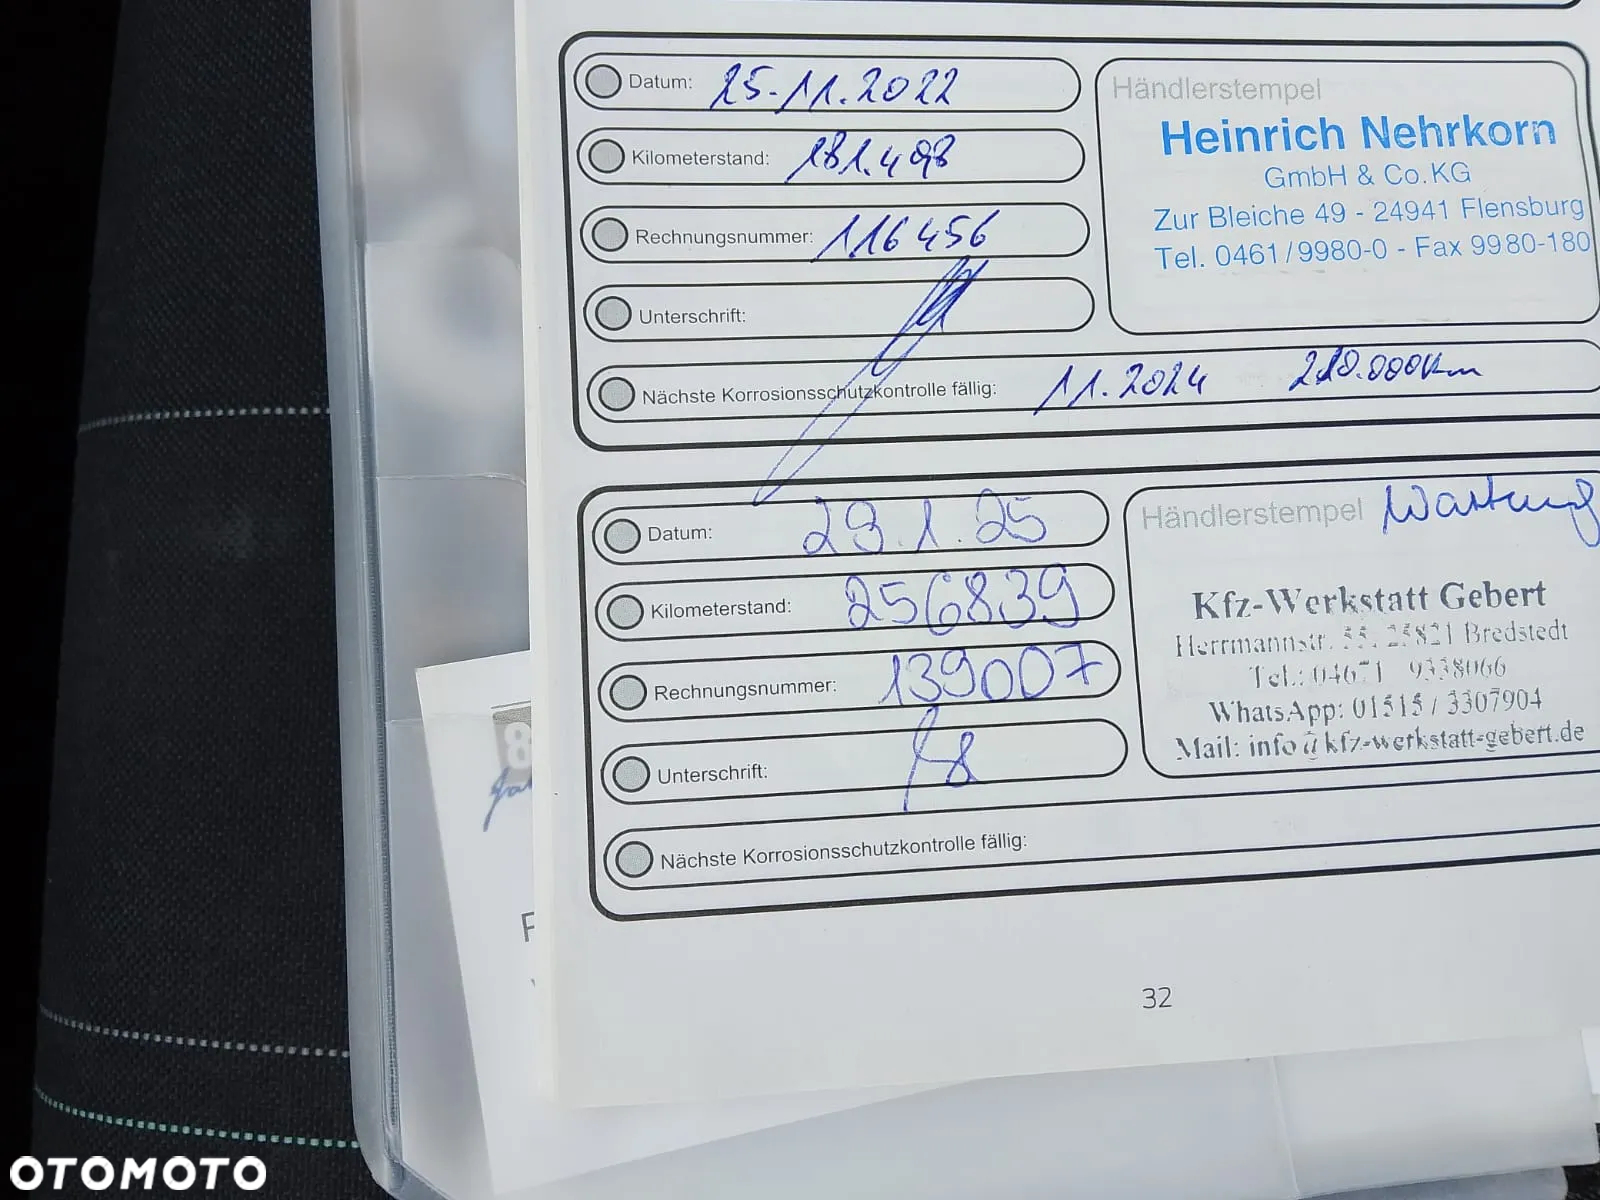 Datum: 25.11.2022
Kilometerstand: 181.498
Rechnungsnummer: 116456
Unterschrift:
Nächste Korrosionsschutzkontrolle fällig: 11.2024 210.000km
Händlerstempel
Heinrich Nehrkorn
GmbH & Co. KG
Zur Bleiche 49 - 24941 Flensburg
Tel. 0461/9980-0 - Fax 9980-180
Datum: 29.1.25
Kilometerstand: 256839
Rechnungsnummer: 139007
Unterschrift:
Nächste Korrosionsschutzkontrolle fällig:
Händlerstempel Wartung
Kfz-Werkstatt Gebert
Herrmannstr. 25821 Bredstedt
Tel.: 04671 9338066
WhatsApp: 01515 / 3307904
Mail: info@kfz-werkstatt-gebert.de
32
8
F
OTOMOTO